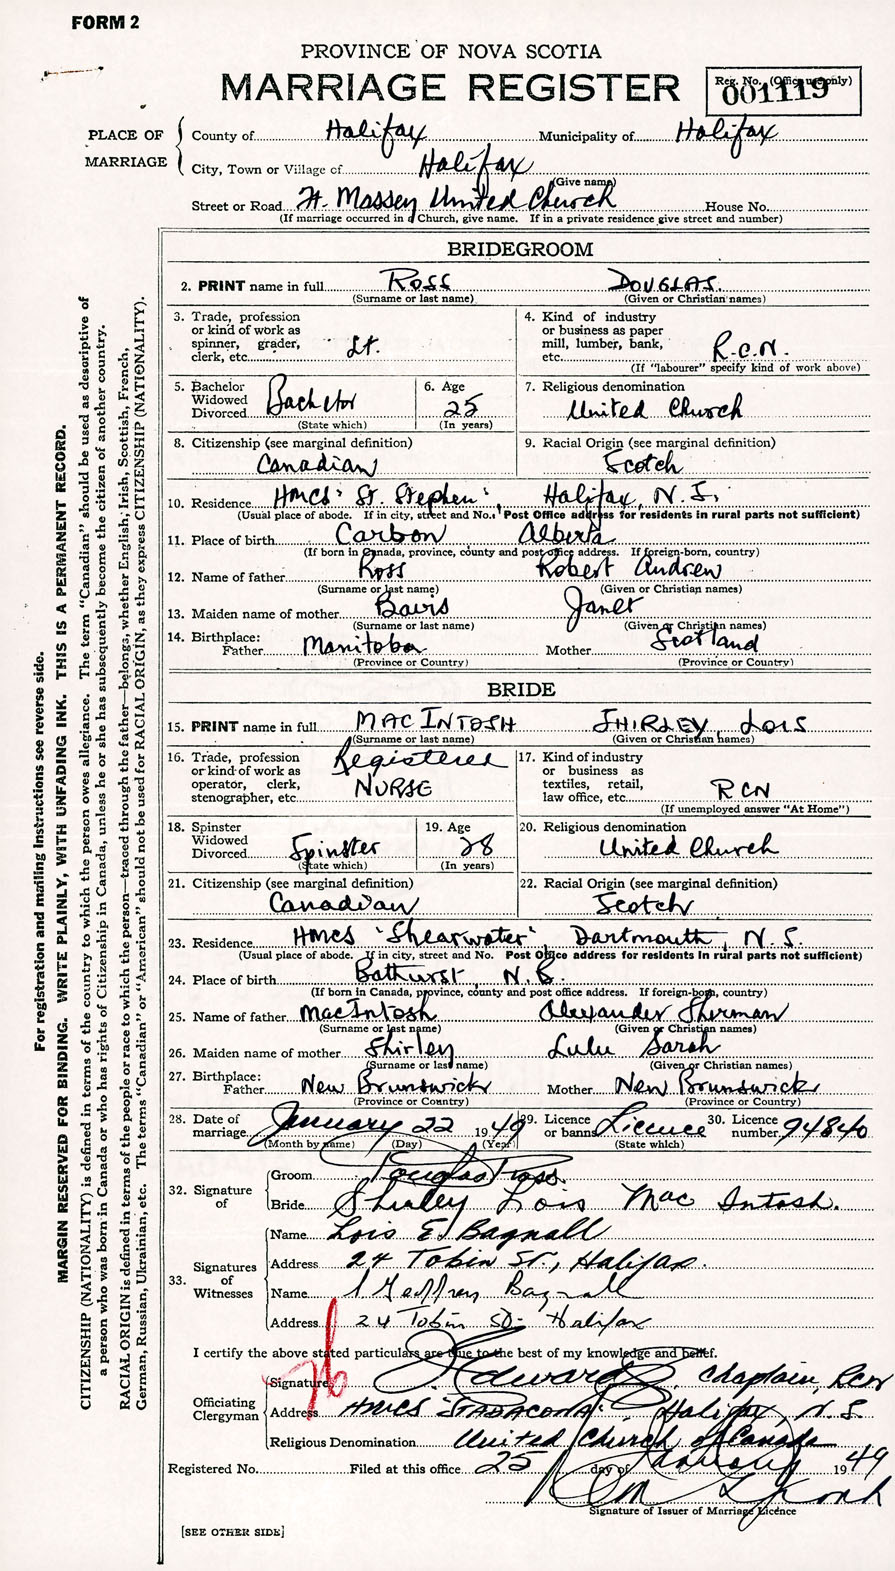 FORM 2
PROVINCE OF NOVA SCOTIA
MARRIAGE REGISTER
Reg. No. (Office use only)
001119
PLACE OF MARRIAGE
County of Halifax Municipality of Halifax
City, Town or Village of Halifax
(Give name)
Street or Road Ft. Massey United Church House No.
(If marriage occurred in a Church, give name. If in a private residence give street and number)
BRIDEGROOM
2. PRINT name in full ROSS DOUGLAS
(Surname or last name) (Given or Christian names)
3. Trade, profession or kind of work as spinner, grader, clerk, etc. Lt.
4. Kind of industry or business as paper mill, lumber, bank, etc. R.C.N.
(If "labourer" specify kind of work above)
5. Bachelor Widowed Divorced Bachelor
(State which)
6. Age 25
(In years)
7. Religious denomination
United Church
8. Citizenship (see marginal definition)
Canadian
9. Racial Origin (see marginal definition)
Scotch
10. Residence HMCS 'St. Stephen', Halifax, N.S.
(Usual place of abode. If in city, street and No. Post Office address for residents in rural parts not sufficient)
11. Place of birth Carbon Alberta
(If born in Canada, province, county and post office address. If foreign-born, country)
12. Name of father Ross Robert Andrew
(Surname or last name) (Given or Christian names)
13. Maiden name of mother Janet
(Surname or last name) (Given or Christian names)
14. Birthplace: Father Manitoba Mother Scotland
(Province or Country) (Province or Country)
BRIDE
15. PRINT name in full MACINTOSH SHIRLEY LOIS
(Surname or last name) (Given or Christian names)
16. Trade, profession or kind of work as operator, clerk, stenographer, etc. Registered NURSE
17. Kind of industry or business as textiles, retail, law office, etc. RCN
(If unemployed answer "At Home")
18. Spinster Widowed Divorced Spinster
(State which)
19. Age 28
(In years)
20. Religious denomination
United Church
21. Citizenship (see marginal definition)
Canadian
22. Racial Origin (see marginal definition)
Scotch
23. Residence HMCS 'Shearwater', Dartmouth, N.S.
(Usual place of abode. If in city, street and No. Post Office address for residents in rural parts not sufficient)
24. Place of birth Bathurst, N.B.
(If born in Canada, province, county and post office address. If foreign-born, country)
25. Name of father MacIntosh Alexander Sherman
(Surname or last name) (Given or Christian names)
26. Maiden name of mother Shirley Lulu Sarah
(Surname or last name) (Given or Christian names)
27. Birthplace: Father New Brunswick Mother New Brunswick
(Province or Country) (Province or Country)
28. Date of marriage January 22 1949
(Month by name) (Day) (Year)
29. Licence or banns Licence
(State which)
30. Licence number 94840
32. Signature of
Groom Douglas Ross
Bride Shirley Lois MacIntosh.
33. Signatures of Witnesses
Name Lois E. Bagnall
Address 24 Tobin St., Halifax.
Name Geoffrey Bagnall
Address 24 Tobin St- Halifax
I certify the above stated particulars are true to the best of my knowledge and belief.
Officiating Clergyman
Signature Edwards, Chaplain, RCN
Address HMCS 'STADACONA', Halifax, N.S.
Religious Denomination United Church of Canada
Registered No. Filed at this office 25 day of January 1949
Signature of Issuer of Marriage Licence
[SEE OTHER SIDE]
For registration and mailing instructions see reverse side.
MARGIN RESERVED FOR BINDING. WRITE PLAINLY, WITH UNFADING INK. THIS IS A PERMANENT RECORD.
CITIZENSHIP (NATIONALITY) is defined in terms of the country to which the person owes allegiance. The term "Canadian" should be used as descriptive of
a person who was born in Canada or who has rights of Citizenship in Canada, unless he or she has subsequently become the citizen of another country.
RACIAL ORIGIN is defined in terms of the people or race to which the person—traced through the father—belongs, whether English, Irish, Scottish, French,
German, Russian, Ukrainian, etc. The terms "Canadian" or "American" should not be used for RACIAL ORIGIN, as they express CITIZENSHIP (NATIONALITY).